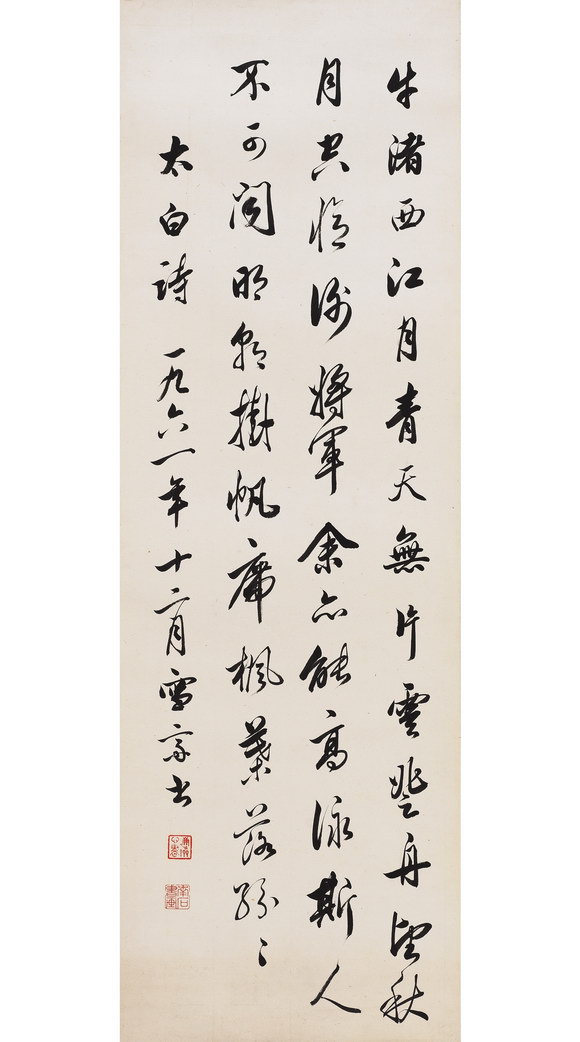 牛渚西江月青天無片雲登舟望秋
月空憶謝將軍余亦能高詠斯人
不可聞明朝掛帆席楓葉落紛〻
太白詩 一九六一年十二月雪書